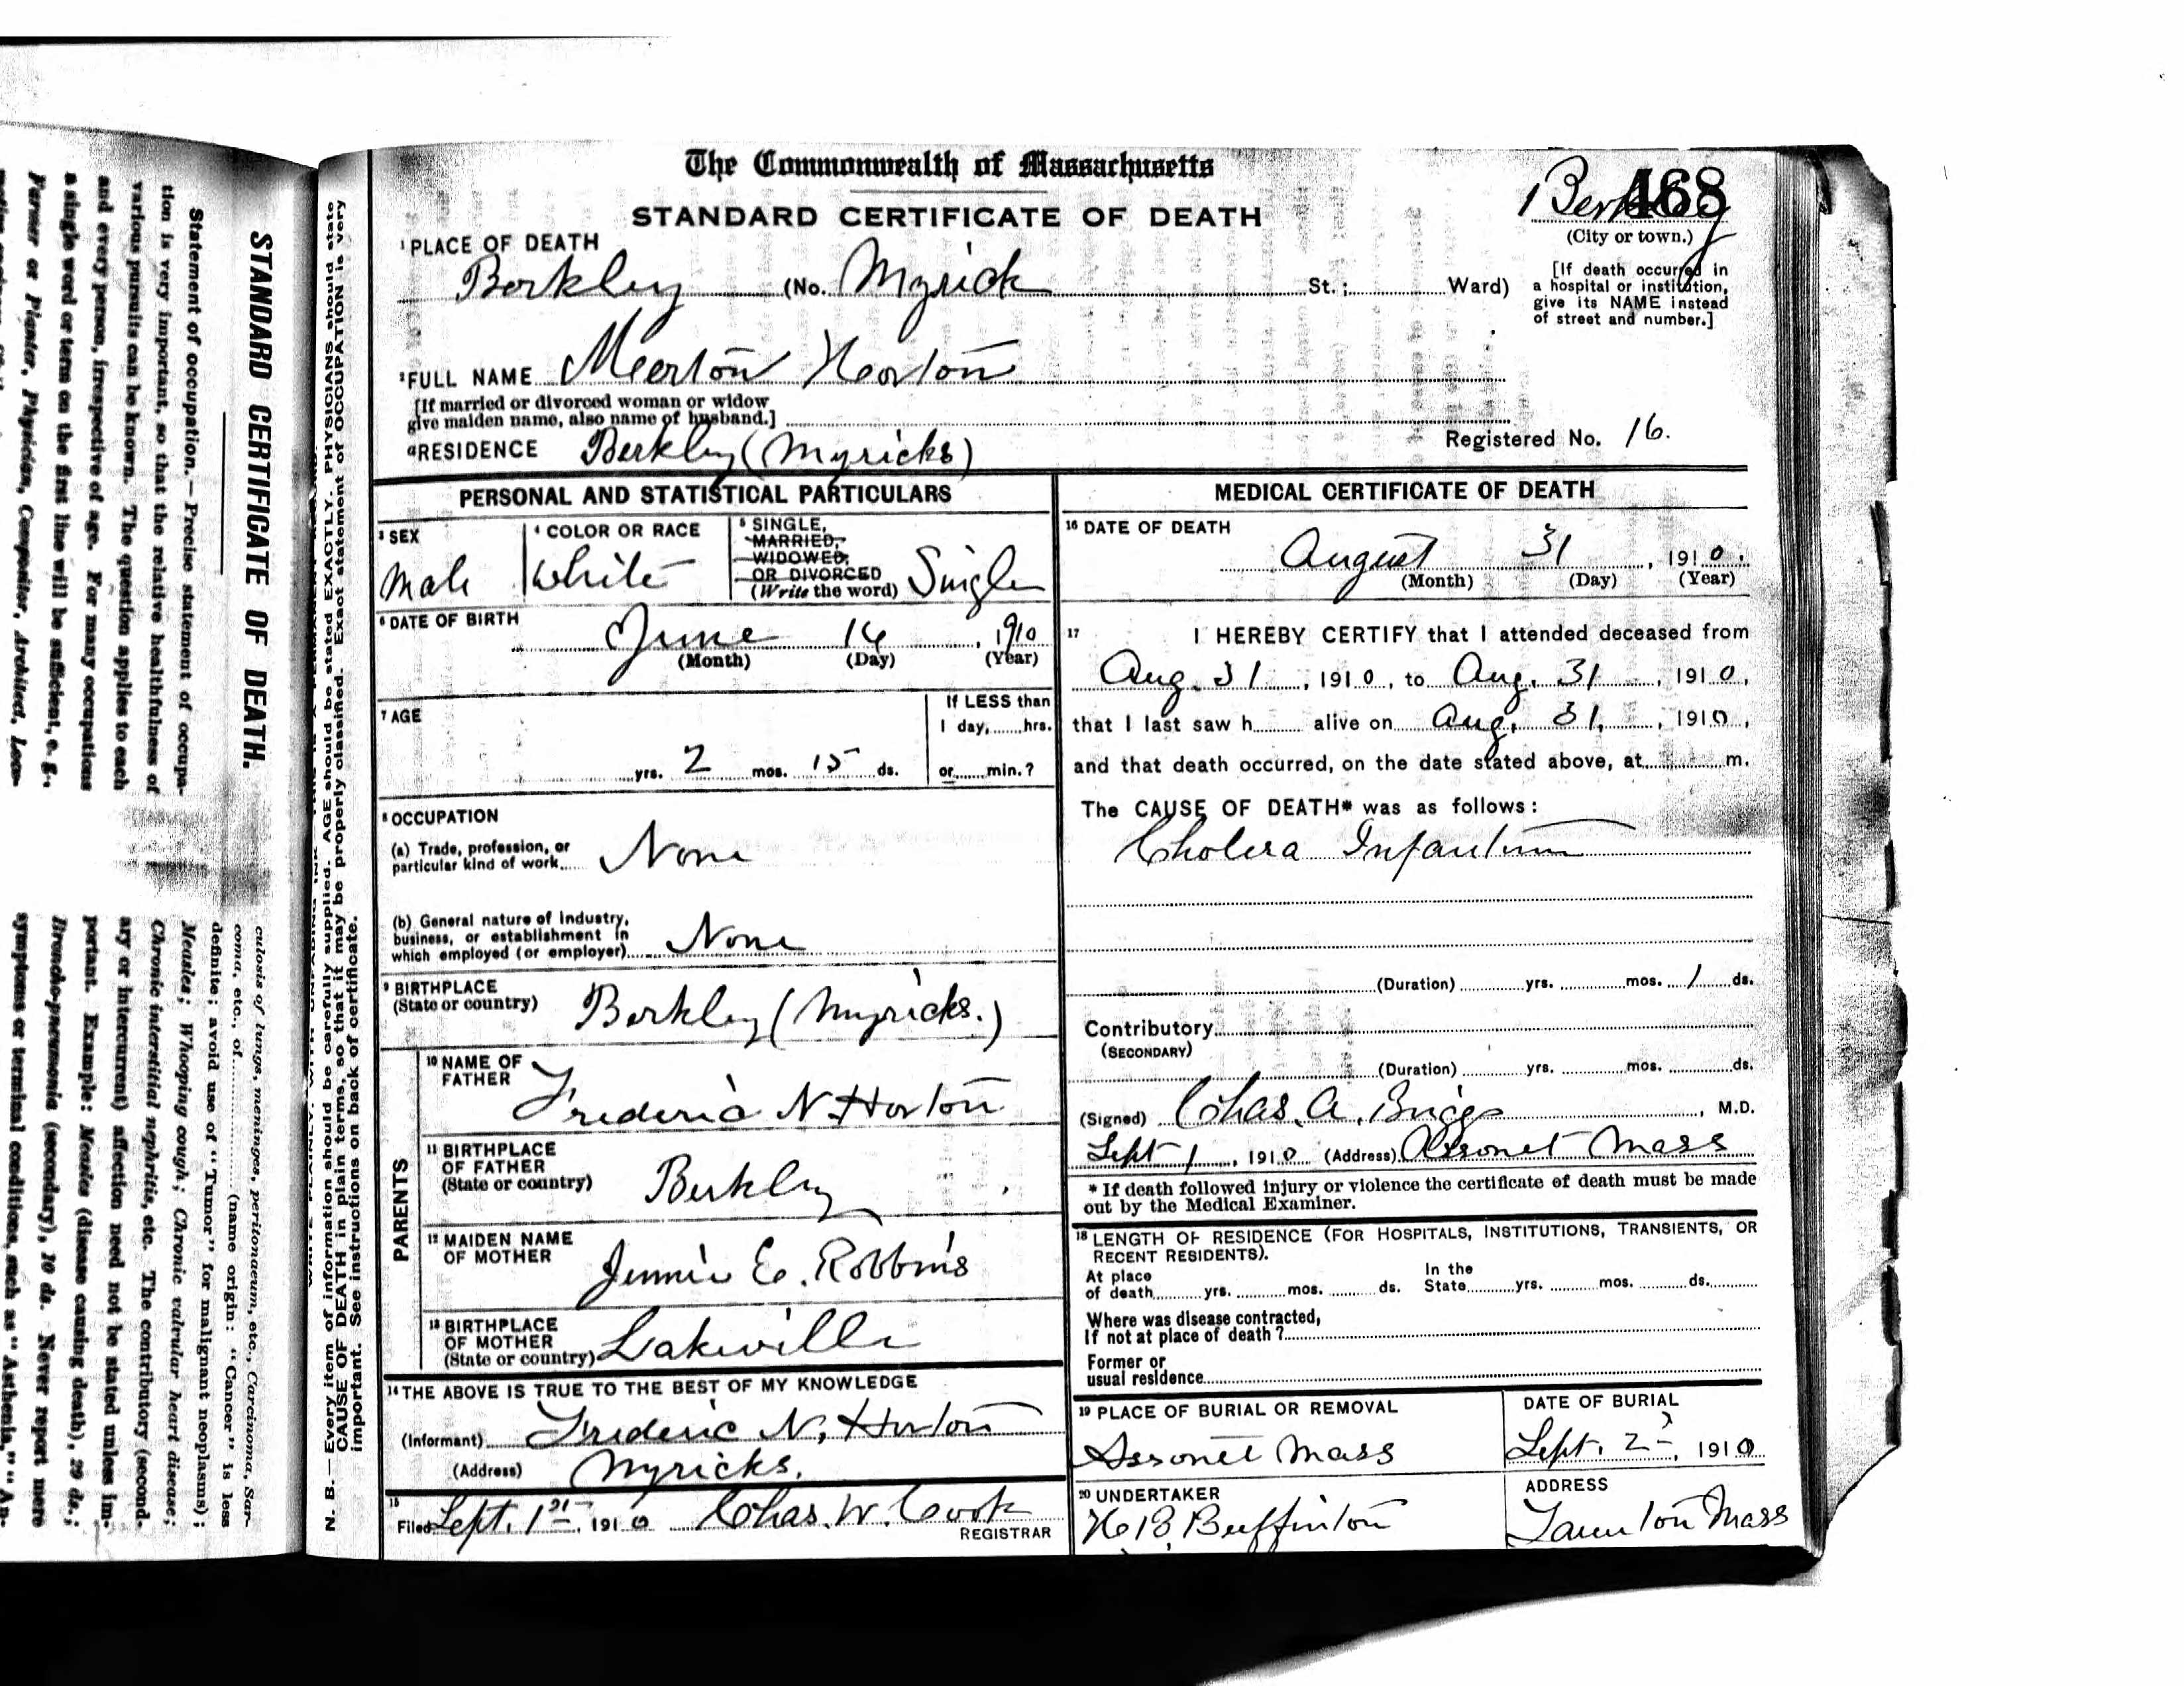 The Commonwealth of Massachusetts
STANDARD CERTIFICATE OF DEATH
468
Berkley
(City or town.)
1 PLACE OF DEATH
Berkley (No. Myrick St.; Ward)
[If death occurred in
a hospital or institution,
give its NAME instead
of street and number.]
2 FULL NAME Merton Horton
[If married or divorced woman or widow
give maiden name, also name of husband.]
Registered No. 16.
a RESIDENCE Berkley (Myricks)
PERSONAL AND STATISTICAL PARTICULARS
3 SEX
Male
4 COLOR OR RACE
White
5 SINGLE,
MARRIED,
WIDOWED,
OR DIVORCED
(Write the word) Single
6 DATE OF BIRTH
June 16, 1910
(Month) (Day) (Year)
7 AGE
yrs. 2 mos. 15 ds.
If LESS than
1 day, hrs.
or min.?
8 OCCUPATION
(a) Trade, profession, or
particular kind of work None
(b) General nature of industry,
business, or establishment in
which employed (or employer) None
9 BIRTHPLACE
(State or country) Berkley (Myricks.)
PARENTS
10 NAME OF
FATHER
Frederic N. Horton
11 BIRTHPLACE
OF FATHER
(State or country) Berkley
12 MAIDEN NAME
OF MOTHER Jennie E. Robbins
13 BIRTHPLACE
OF MOTHER
(State or country) Lakeville
14 THE ABOVE IS TRUE TO THE BEST OF MY KNOWLEDGE
(Informant) Frederic N. Horton
(Address) Myricks.
15
Filed Sept. 1st, 1910 Chas. W. Cook
REGISTRAR
MEDICAL CERTIFICATE OF DEATH
16 DATE OF DEATH
August 31, 1910.
(Month) (Day) (Year)
17 I HEREBY CERTIFY that I attended deceased from
Aug. 31, 1910, to Aug. 31, 1910,
that I last saw h alive on Aug. 31, 1910,
and that death occurred, on the date stated above, at m.
The CAUSE OF DEATH* was as follows:
Cholera Infantum
(Duration) yrs. mos. 1 ds.
Contributory
(SECONDARY)
(Duration) yrs. mos. ds.
(Signed) Chas. A. Briggs, M.D.
Sept 1, 1910 (Address) Assonet Mass
* If death followed injury or violence the certificate of death must be made
out by the Medical Examiner.
18 LENGTH OF RESIDENCE (FOR HOSPITALS, INSTITUTIONS, TRANSIENTS, OR
RECENT RESIDENTS).
At place
of death yrs. mos. ds.
In the
State yrs. mos. ds.
Where was disease contracted,
If not at place of death?
Former or
usual residence
19 PLACE OF BURIAL OR REMOVAL
Assonet Mass
DATE OF BURIAL
Sept. 2, 1910
20 UNDERTAKER
H B Buffinton
ADDRESS
Taunton Mass
N. B.—Every item of information should be carefully supplied. AGE should be stated EXACTLY. PHYSICIANS should state
CAUSE OF DEATH in plain terms, so that it may be properly classified. Exact statement of OCCUPATION is very
important. See instructions on back of certificate.
STANDARD CERTIFICATE OF DEATH.
Statement of occupation.—Precise statement of occupa-
tion is very important, so that the relative healthfulness of
various pursuits can be known. The question applies to each
and every person, irrespective of age. For many occupations
a single word or term on the first line will be sufficient, e. g.,
Farmer or Planter, Physician, Compositor, Architect, Loco-
culosis of lungs, meninges, peritonaeum, etc., Carcinoma, Sar-
coma, etc., of (name origin: "Cancer" is less
definite; avoid use of "Tumor" for malignant neoplasms);
Measles; Whooping cough; Chronic valvular heart disease;
Chronic interstitial nephritis, etc. The contributory (second-
ary or intercurrent) affection need not be stated unless im-
portant. Example: Measles (disease causing death), 29 ds.;
Broncho-pneumonia (secondary), 10 ds. Never report mere
symptoms or terminal conditions, such as "Asthenia," "An-